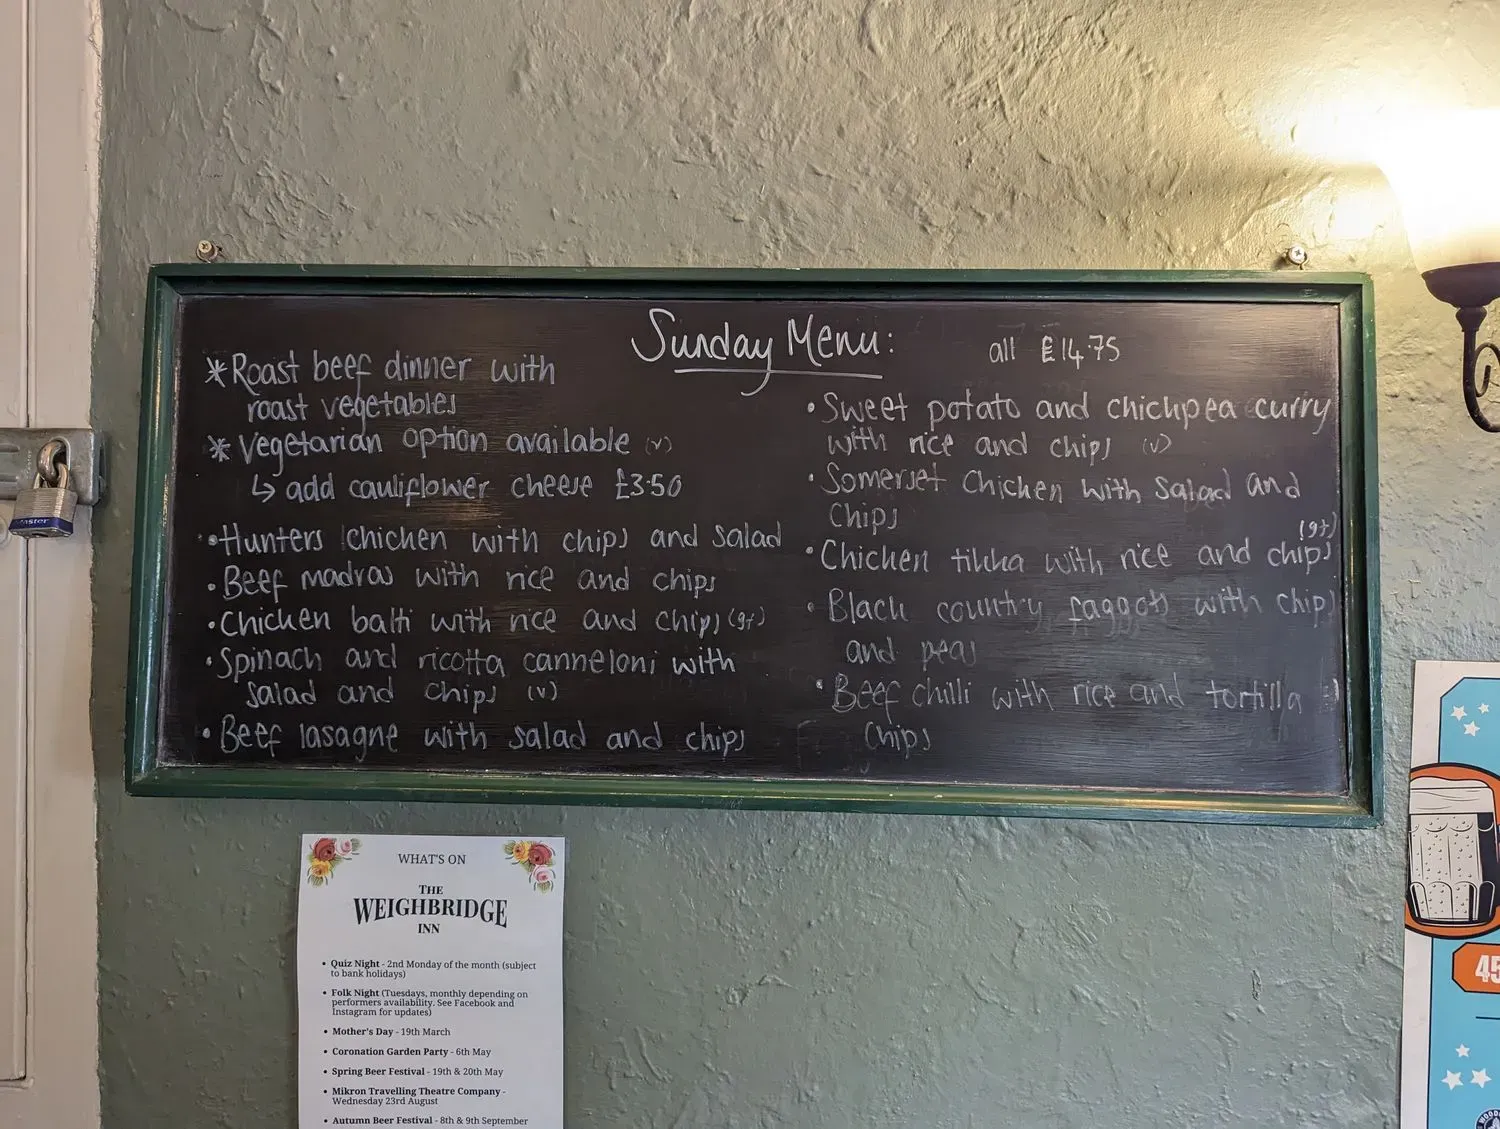 Sunday Menu:
all £14.75
*Roast beef dinner with
roast vegetables
*Vegetarian option available (v)
↳ add cauliflower cheese £3.50
•Hunters chicken with chips and salad
•Beef madras with rice and chips
•Chicken balti with rice and chips (gf)
•Spinach and ricotta canneloni with
salad and chips (v)
•Beef lasagne with salad and chips
•Sweet potato and chickpea curry
with rice and chips (v)
•Somerset Chicken with salad and
Chips
(gf)
•Chicken tikka with rice and chips
•Black country faggots with chips
and peas
•Beef chilli with rice and tortilla
Chips
WHAT'S ON
THE
WEIGHBRIDGE
INN
• Quiz Night - 2nd Monday of the month (subject
to bank holidays)
• Folk Night (Tuesdays, monthly depending on
performers availability. See Facebook and
Instagram for updates)
• Mother's Day - 19th March
• Coronation Garden Party - 6th May
• Spring Beer Festival - 19th & 20th May
• Mikron Travelling Theatre Company -
Wednesday 23rd August
• Autumn Beer Festival - 8th & 9th September
Master
45